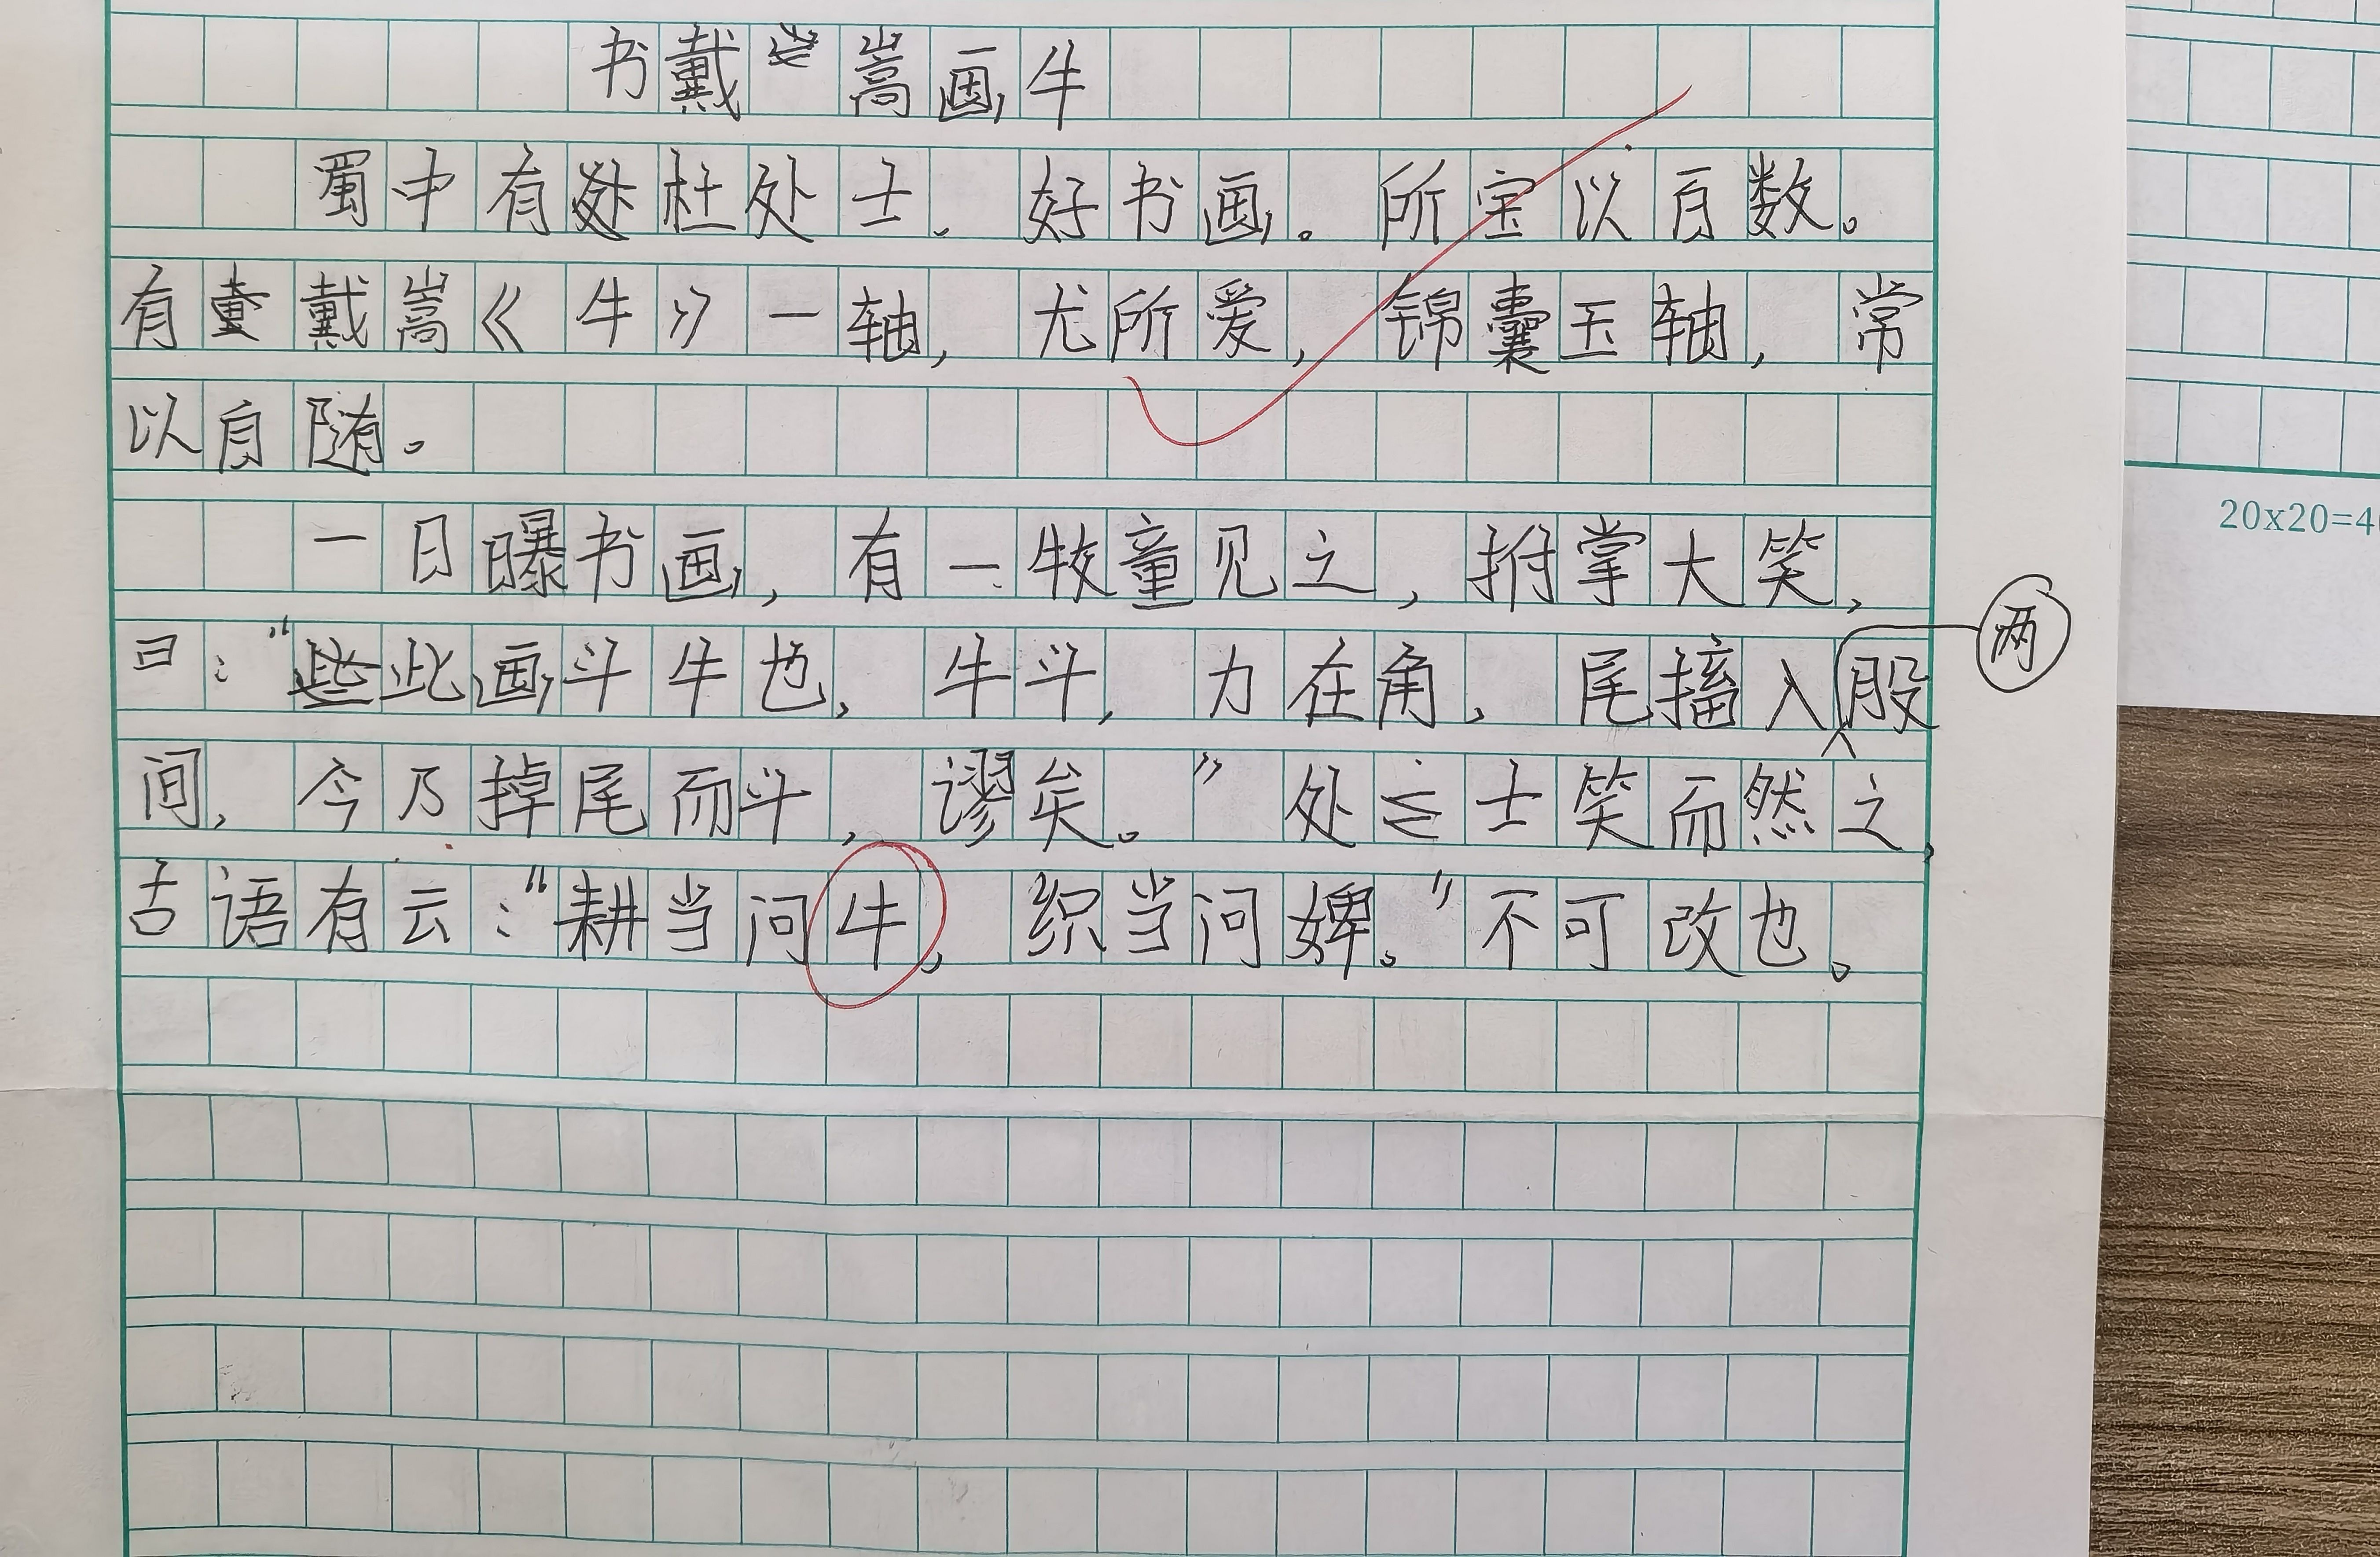 书戴嵩画牛
蜀中有杜处士.好书画。所宝以百数。
有戴嵩《牛》一轴,尤所爱,锦囊玉轴,常
以自随。
一日曝书画,有一牧童见之,拊掌大笑,
曰:“此画斗牛也,牛斗,力在角,尾搐入两股
间,今乃掉尾而斗,谬矣。”处士笑而然之,
古语有云:“耕当问牛,织当问婢。”不可改也。
20x20=4